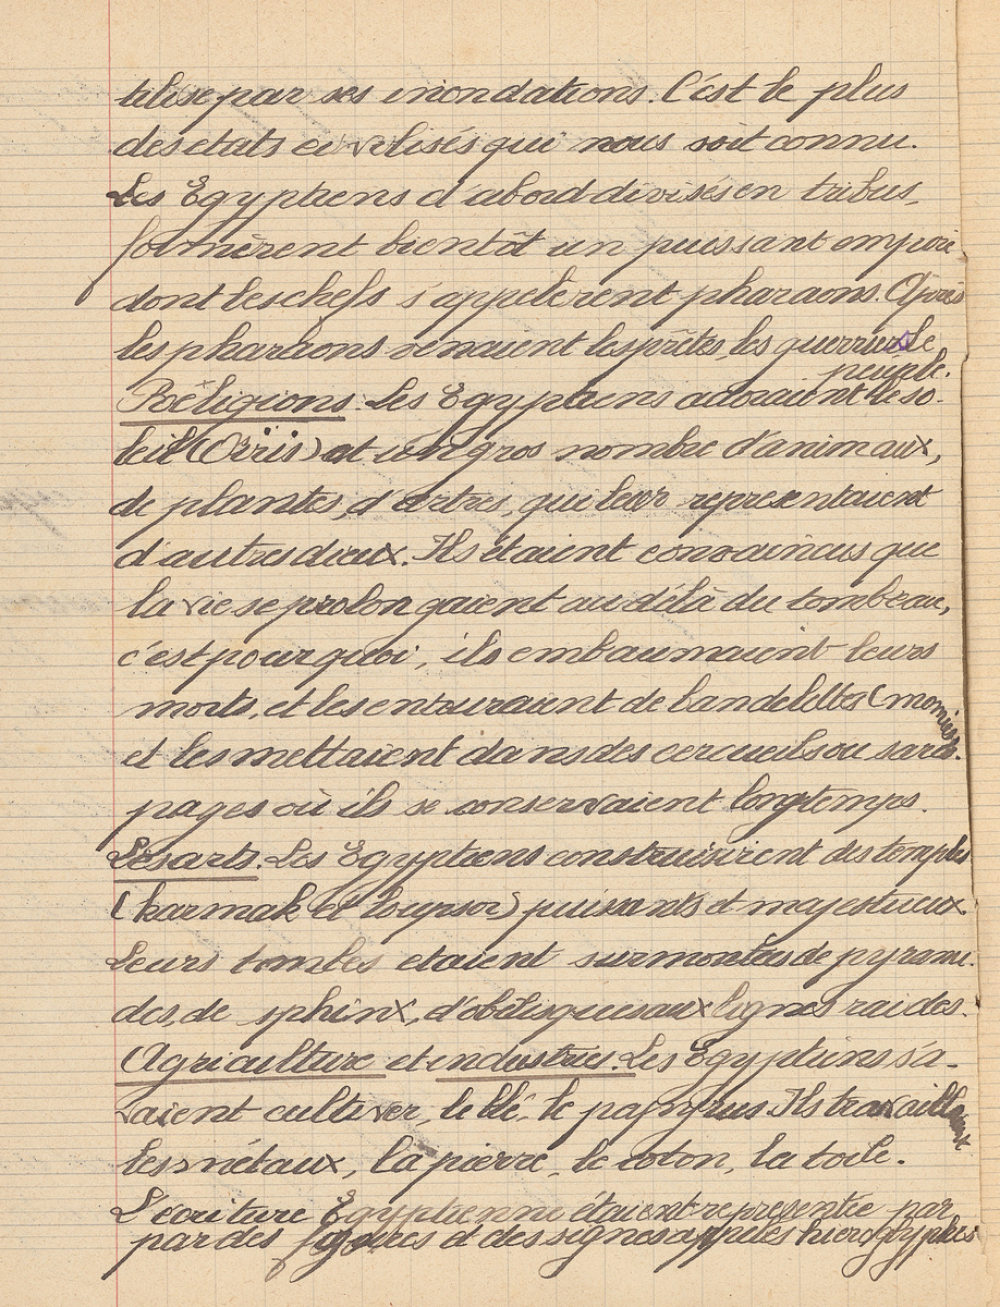 tilise par ses inondations. C'est le plus
des etats civilisés qui nous soit connu.
Les Egyptiens d'abord divisés en tribus,
formèrent bientôt un puissant empire
dont les chefs s'appelèrent pharaons. Après
les pharaons venaient les prêtes, les guerriers le
peuple.
Religions. Les Egyptiens adoraient le so-
leil (Osiris) et un gros nombre d'animaux,
de plantes, d'artres, qui leur representaient
d'autres dieux. Ils étaient convaincus que
la vie se prolongaient au délà du tombeau,
c'est pourquoi, ils embaumaient leurs
morts, et les entouraient de bandelettes (momies
et les mettaient dans des cercueils ou sarco-
pages où ils se conservaient longtemps.
Les arts. Les Egyptiens construisirent des temples
(karmak et loupsor) puissants et majestueux
Leurs tombes etaient surmontées de pyrami-
des, de sphinx, d'obélisques aux lignes raides.
Agriculture et industries. Les Egyptiens sa-
vaient cultiver, le blé, le papyrus. Ils travaillaient
les métaux, la pierre, le coton, la toile.
L'écriture Egyptienne étaient representée par
par des figures et des signes appelés hieroglyphes